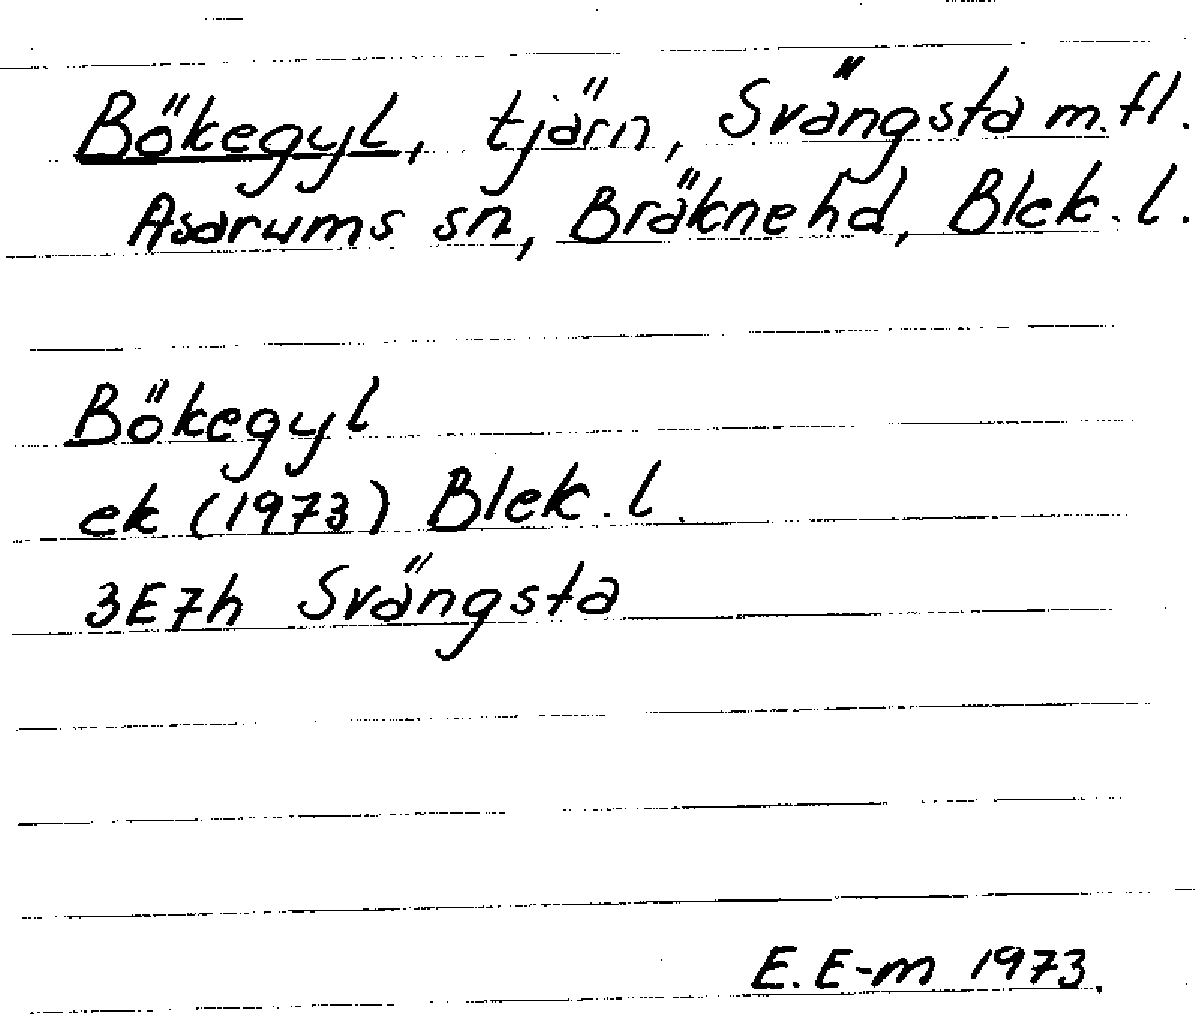 Bökegyl, tjärn, Svängsta m.fl.
Asarums sn, Bräknehd, Blek.l.
Bökegyl
ek (1973) Blek.l.
3E7h Svängsta
E.E-m 1973.